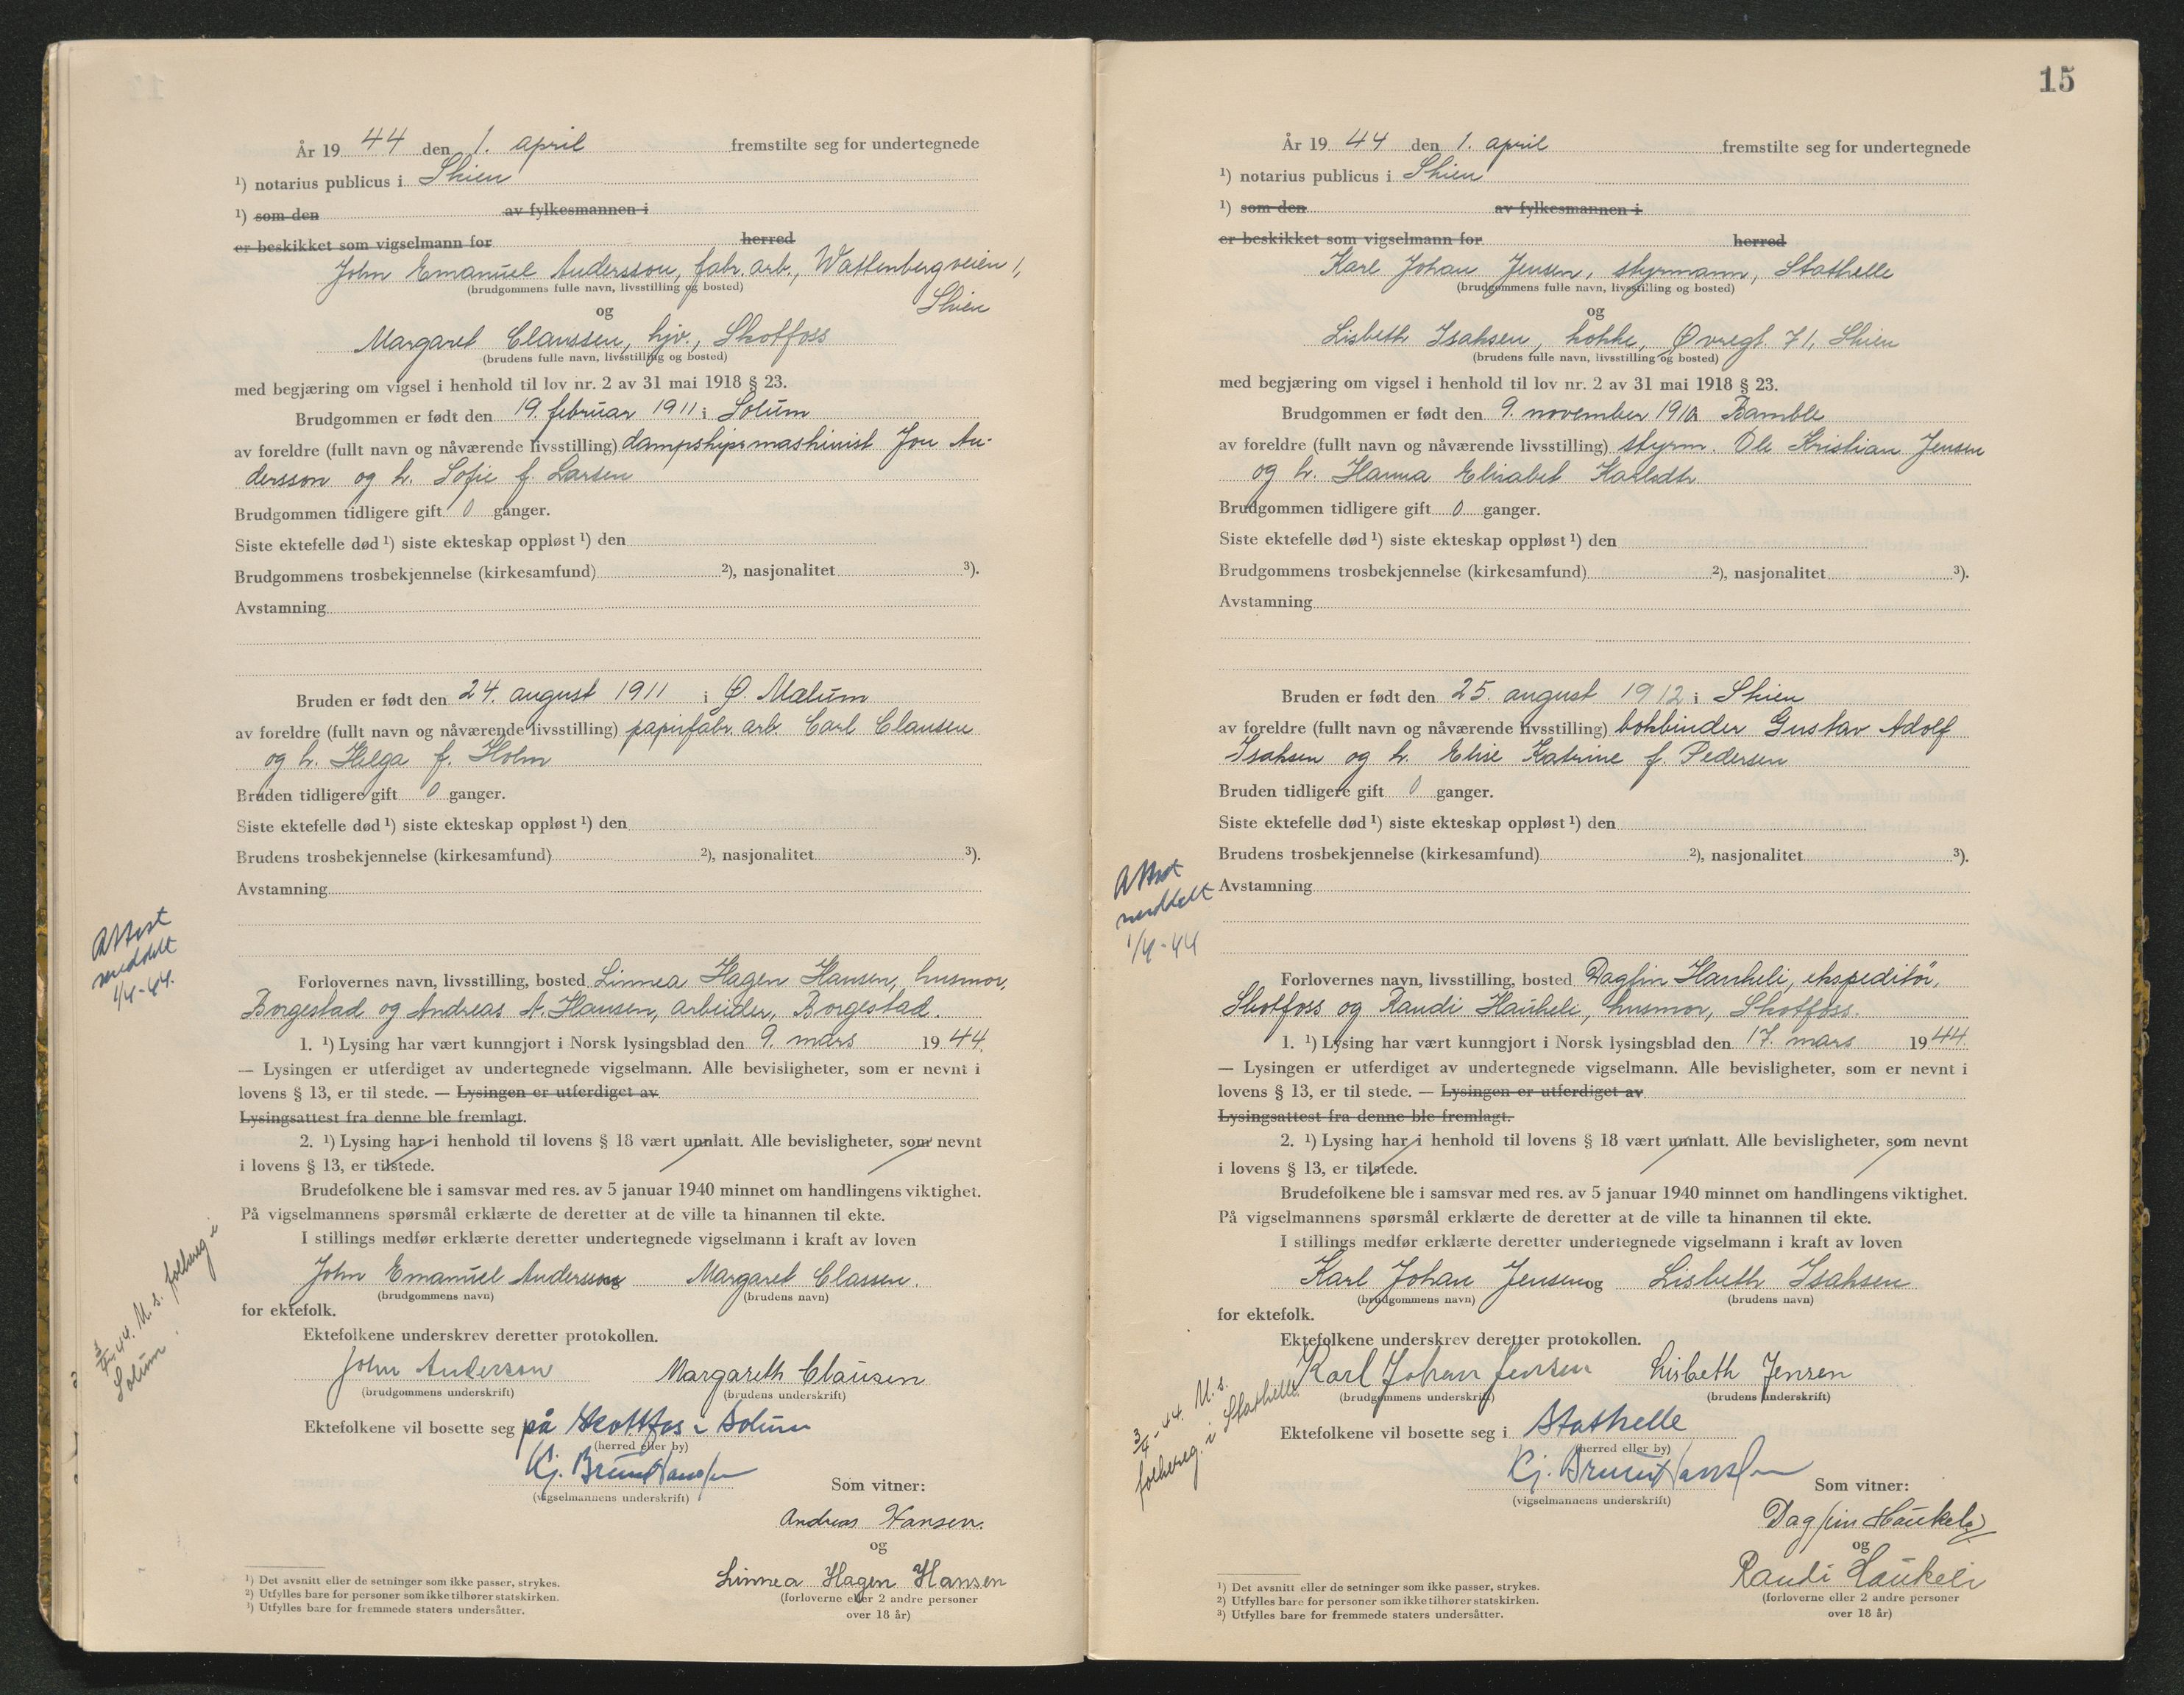 År 19 44 den 1. april fremstilte seg for undertegnede
¹) notarius publicus i Skien
¹) som den av fylkesmannen i
er beskikket som vigselmann for herred
John Emanuel Andersson, fabr. arb., Wattenbergveien 1,
(brudgommens fulle navn, livsstilling og bosted)
Skien
og
Margaret Claussen, hjv., Skotfoss
(brudens fulle navn, livsstilling og bosted)
med begjæring om vigsel i henhold til lov nr. 2 av 31 mai 1918 § 23.
Brudgommen er født den 19. februar 1911 i Solum
av foreldre (fullt navn og nåværende livsstilling) dampskipsmaskinist Jon An-
dersson og h. Sofie f. Larsen
Brudgommen tidligere gift 0 ganger.
Siste ektefelle død ¹) siste ekteskap oppløst ¹) den
Brudgommens trosbekjennelse (kirkesamfund) ²), nasjonalitet ³).
Avstamning
Bruden er født den 24. august 1911 i Ø. Mælum
av foreldre (fullt navn og nåværende livsstilling) papirfabr. arb. Carl Clausen
og h. Helga f. Holm
Bruden tidligere gift 0 ganger.
Siste ektefelle død ¹) siste ekteskap oppløst ¹) den
Brudens trosbekjennelse (kirkesamfund) ²), nasjonalitet ³).
Avstamning
Attest
meddelt
1/4-44.
Forlovernes navn, livsstilling, bosted Linnea Hagen Hansen, husmor,
Borgestad og Andreas A. Hansen, arbeider, Borgestad.
1. ¹) Lysing har vært kunngjort i Norsk lysingsblad den 9. mars 19 44.
— Lysingen er utferdiget av undertegnede vigselmann. Alle bevisligheter, som er nevnt i
lovens § 13, er til stede. — Lysingen er utferdiget av
Lysingsattest fra denne ble fremlagt.
2. ¹) Lysing har i henhold til lovens § 18 vært unnlatt. Alle bevisligheter, som nevnt
i lovens § 13, er tilstede.
Brudefolkene ble i samsvar med res. av 5 januar 1940 minnet om handlingens viktighet.
På vigselmannens spørsmål erklærte de deretter at de ville ta hinannen til ekte.
I stillings medfør erklærte deretter undertegnede vigselmann i kraft av loven
John Emanuel Andersson og Margaret Classen.
(brudgommens navn) (brudens navn)
for ektefolk.
Ektefolkene underskrev deretter protokollen.
John Anderson Margareth Clausen
(brudgommens underskrift) (brudens underskrift)
3/4-44. M. s. folkereg i
Solum.
Ektefolkene vil bosette seg på Skottfos i Solum
(herred eller by)
Kj. Bruun Hansen
(vigselmannens underskrift)
Som vitner:
Andreas Hansen.
og
Linnea Hagen Hansen
(forloverne eller 2 andre personer
over 18 år)
¹) Det avsnitt eller de setninger som ikke passer, strykes.
²) Utfylles bare for personer som ikke tilhører statskirken.
³) Utfylles bare for fremmede staters undersåtter.
15
År 19 44 den 1. april fremstilte seg for undertegnede
¹) notarius publicus i Skien
¹) som den av fylkesmannen i
er beskikket som vigselmann for herred
Karl Johan Jensen, styrmann, Stathelle
(brudgommens fulle navn, livsstilling og bosted)
og
Lisbeth Isaksen, kokke, Øvregt. 71, Skien
(brudens fulle navn, livsstilling og bosted)
med begjæring om vigsel i henhold til lov nr. 2 av 31 mai 1918 § 23.
Brudgommen er født den 9. november 1910 Bamble
av foreldre (fullt navn og nåværende livsstilling) styrm. Ole Kristian Jensen
og h. Hanna Elisabet Karlsdtr.
Brudgommen tidligere gift 0 ganger.
Siste ektefelle død ¹) siste ekteskap oppløst ¹) den
Brudgommens trosbekjennelse (kirkesamfund) ²), nasjonalitet ³).
Avstamning
Bruden er født den 25. august 1912 i Skien
av foreldre (fullt navn og nåværende livsstilling) bokbinder Gustav Adolf
Isaksen og h. Elise Katrine f. Pedersen
Bruden tidligere gift 0 ganger.
Siste ektefelle død ¹) siste ekteskap oppløst ¹) den
Brudens trosbekjennelse (kirkesamfund) ²), nasjonalitet ³).
Attest
meddelt
1/4-44
Avstamning
Forlovernes navn, livsstilling, bosted Dagfin Haukeli, ekspeditør,
Skotfoss og Randi Haukeli, husmor, Skotfoss.
1. ¹) Lysing har vært kunngjort i Norsk lysingsblad den 17. mars 19 44.
— Lysingen er utferdiget av undertegnede vigselmann. Alle bevisligheter, som er nevnt i
lovens § 13, er til stede. — Lysingen er utferdiget av
Lysingsattest fra denne ble fremlagt.
2. ¹) Lysing har i henhold til lovens § 18 vært unnlatt. Alle bevisligheter, som nevnt
i lovens § 13, er tilstede.
Brudefolkene ble i samsvar med res. av 5 januar 1940 minnet om handlingens viktighet.
På vigselmannens spørsmål erklærte de deretter at de ville ta hinannen til ekte.
I stillings medfør erklærte deretter undertegnede vigselmann i kraft av loven
Karl Johan Jensen og Lisbeth Isaksen
(brudgommens navn) (brudens navn)
for ektefolk.
Ektefolkene underskrev deretter protokollen.
Karl Johan Jensen Lisbeth Jensen
(brudgommens underskrift) (brudens underskrift)
3/4-44. M. s.
folkereg. i Stathelle
Ektefolkene vil bosette seg i Stathelle
(herred eller by)
Kj. Bruun Hansen
(vigselmannens underskrift)
Som vitner:
Dagfin Haukeli
og
Randi Haukeli
(forloverne eller 2 andre personer
over 18 år)
¹) Det avsnitt eller de setninger som ikke passer, strykes.
²) Utfylles bare for personer som ikke tilhører statskirken.
³) Utfylles bare for fremmede staters undersåtter.